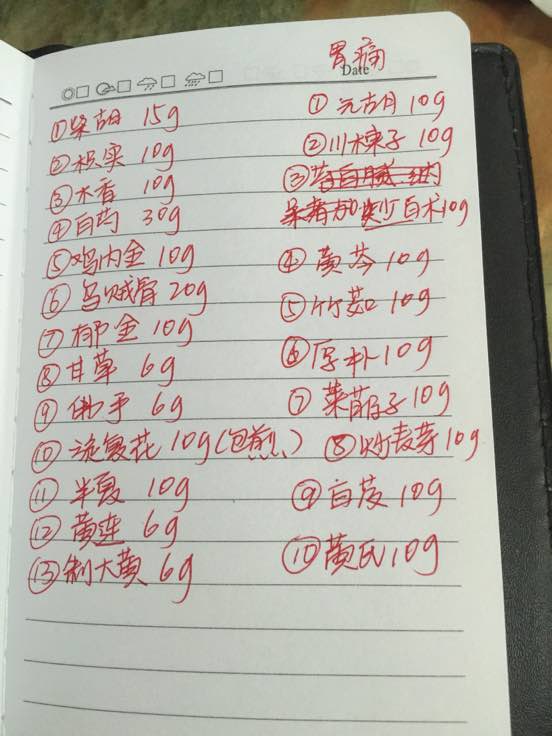 胃痛
Date
①柴胡 15g
②枳实 10g
③木香 10g
④白芍 30g
⑤鸡内金 10g
⑥乌贼骨 20g
⑦郁金 10g
⑧甘草 6g
⑨佛手 6g
⑩旋复花 10g(包煎)
⑪半夏 10g
⑫黄连 6g
⑬制大黄 6g
①元胡 10g
②川楝子 10g
③
炒白术10g
④黄芩10g
⑤竹茹 10g
⑥厚朴10g
⑦莱菔子10g
⑧炒麦芽10g
⑨白芨10g
⑩黄芪10g